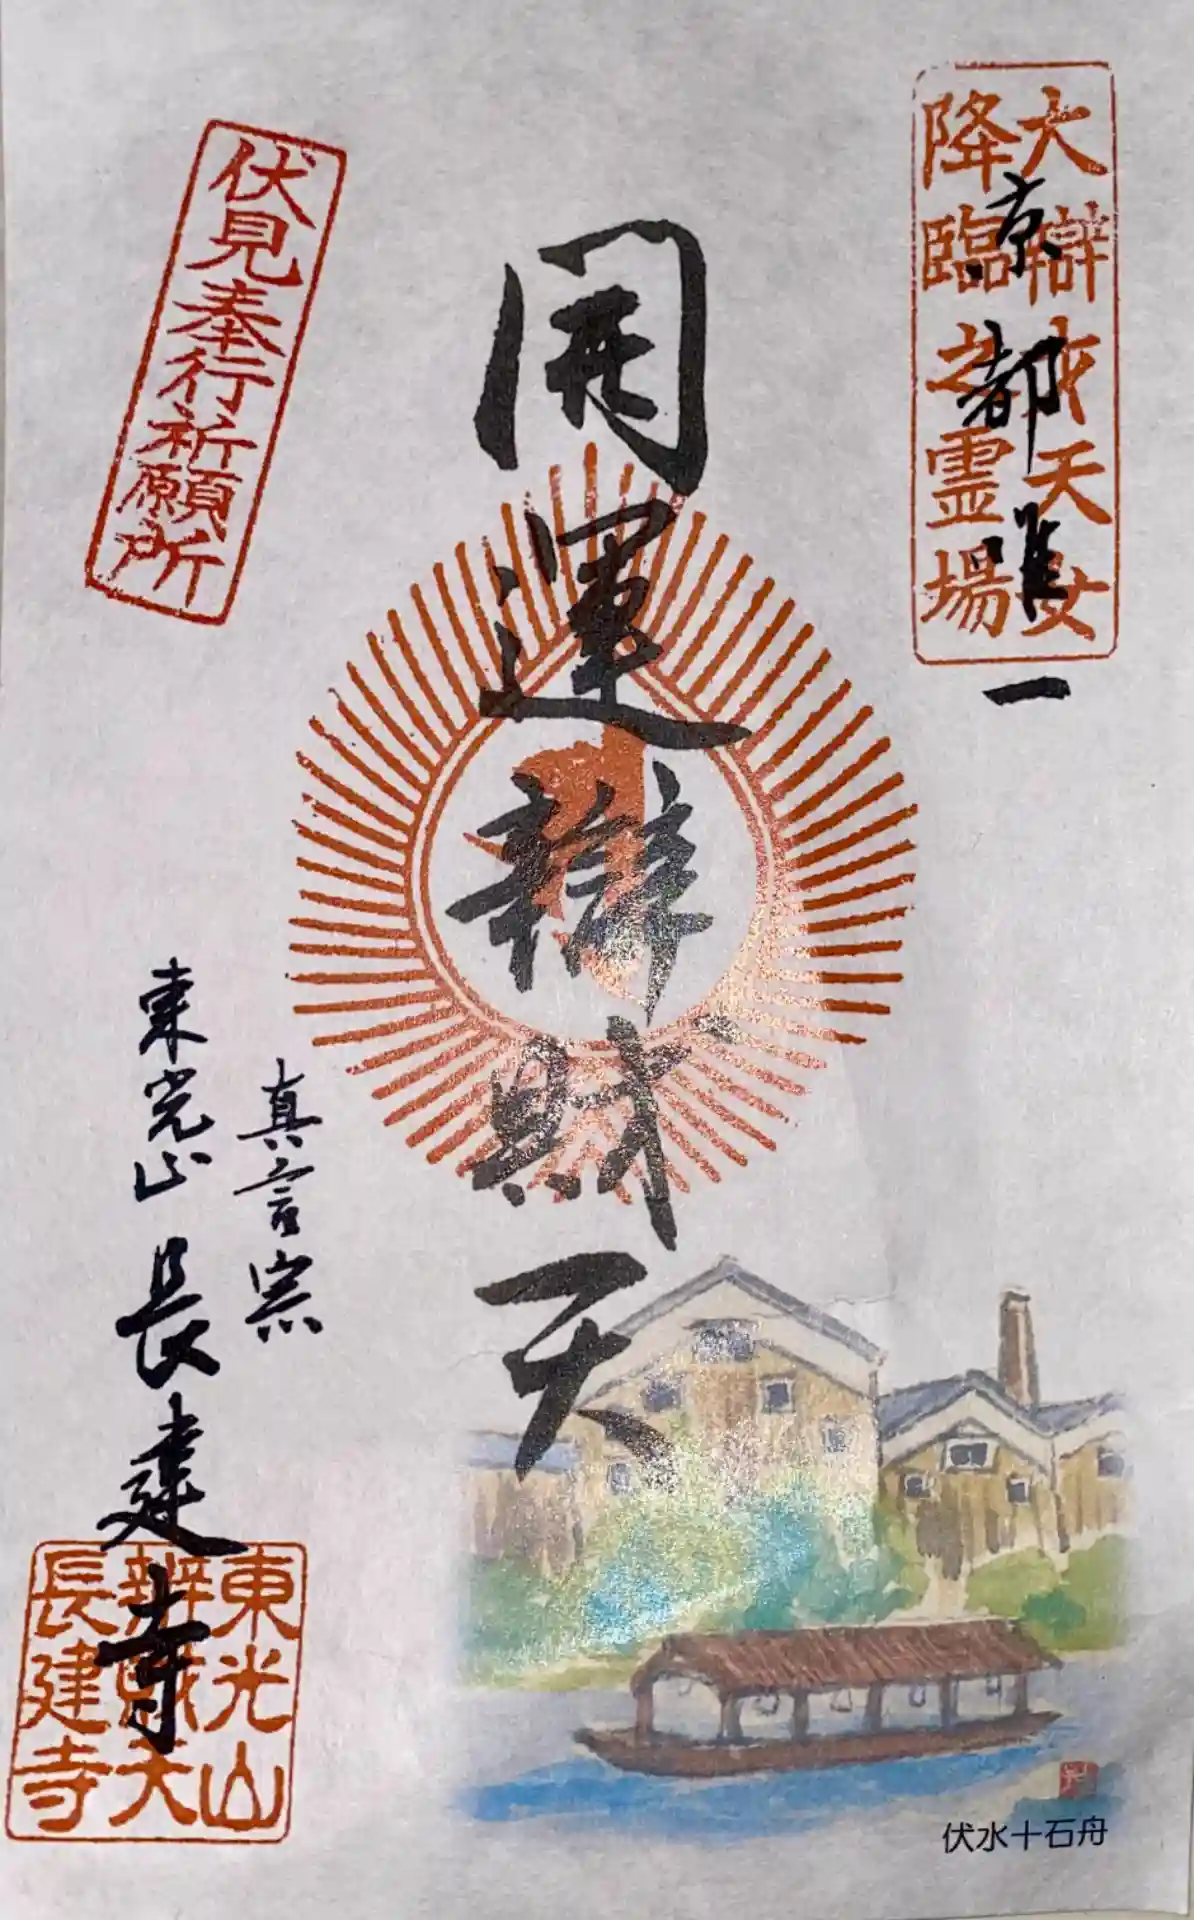 大辯才天女
降臨之霊場
京都唯一
開運辯財天
伏見奉行祈願所
真言宗
東光山 長建寺
東光山
辨財天
長建寺
伏水十石舟